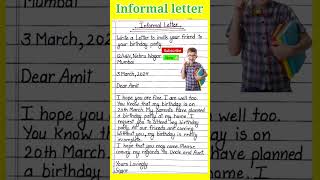 Informal letter
Informal Letter
Write a Letter to invite your friend to
your birthday party.
Subscribe
12/461, Nehru Nagar
Mumbai
3 March, 2024
Dear Amit
I hope you are fine. I am well too.
You know that my birthday is on
20th March. My parents have planned
a birthday party at my home. I
request you to attend my birthday
party. All our friends are coming.
Without you, my birthday is
incomplete.
I hope that you may come. Please
convey my regards to Uncle and Aunt.
Yours Lovingly
Mumbai
3 March, 20
Dear Amit
I hope you
well too.
You know
is on
20th March
have planned